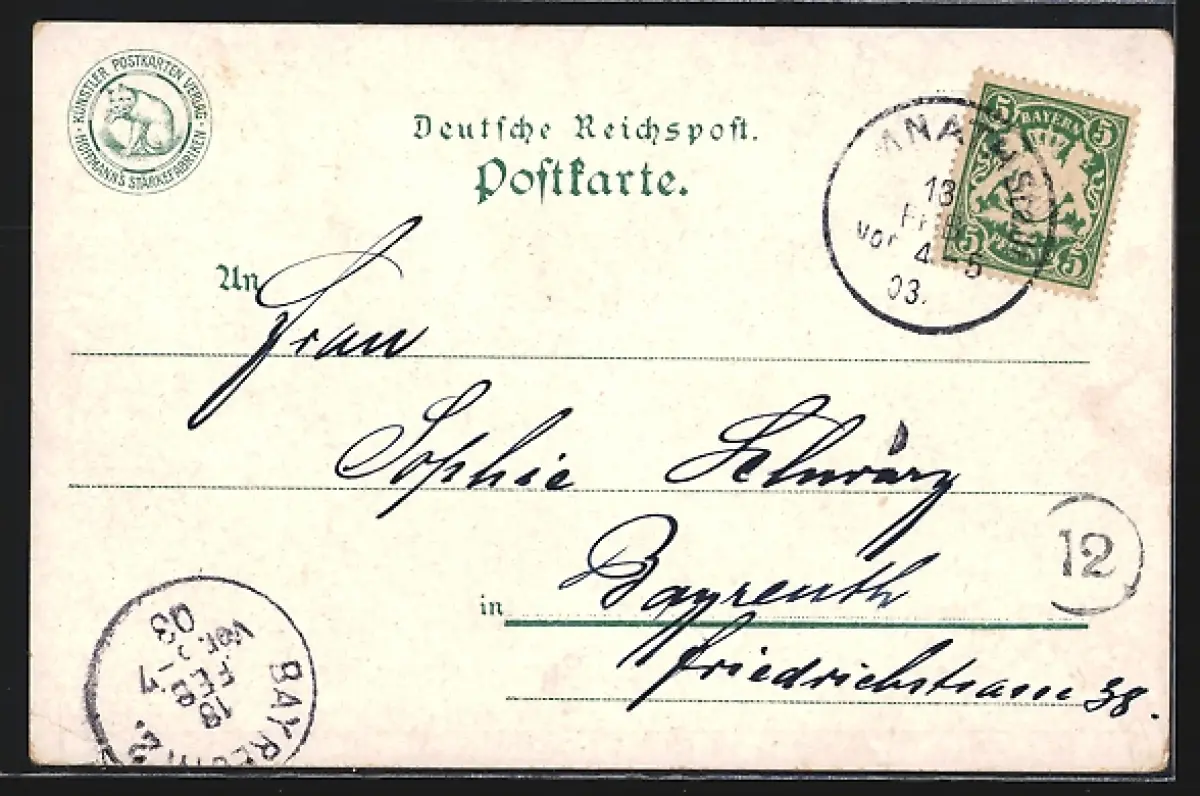 KÜNSTLER POSTKARTEN VERLAG
HOFFMANN'S STÄRKEFABRIKEN
Deutsche Reichspost.
Postkarte.
5 BAYERN 5
5 5
13
FEB
Vor 4-5
03.
An
Frau
Sophie Schwarz
12
in Bayreuth
Friedrichstrasse 38.
BAYREUTH 2.
13
FEB
Vor. -7
03